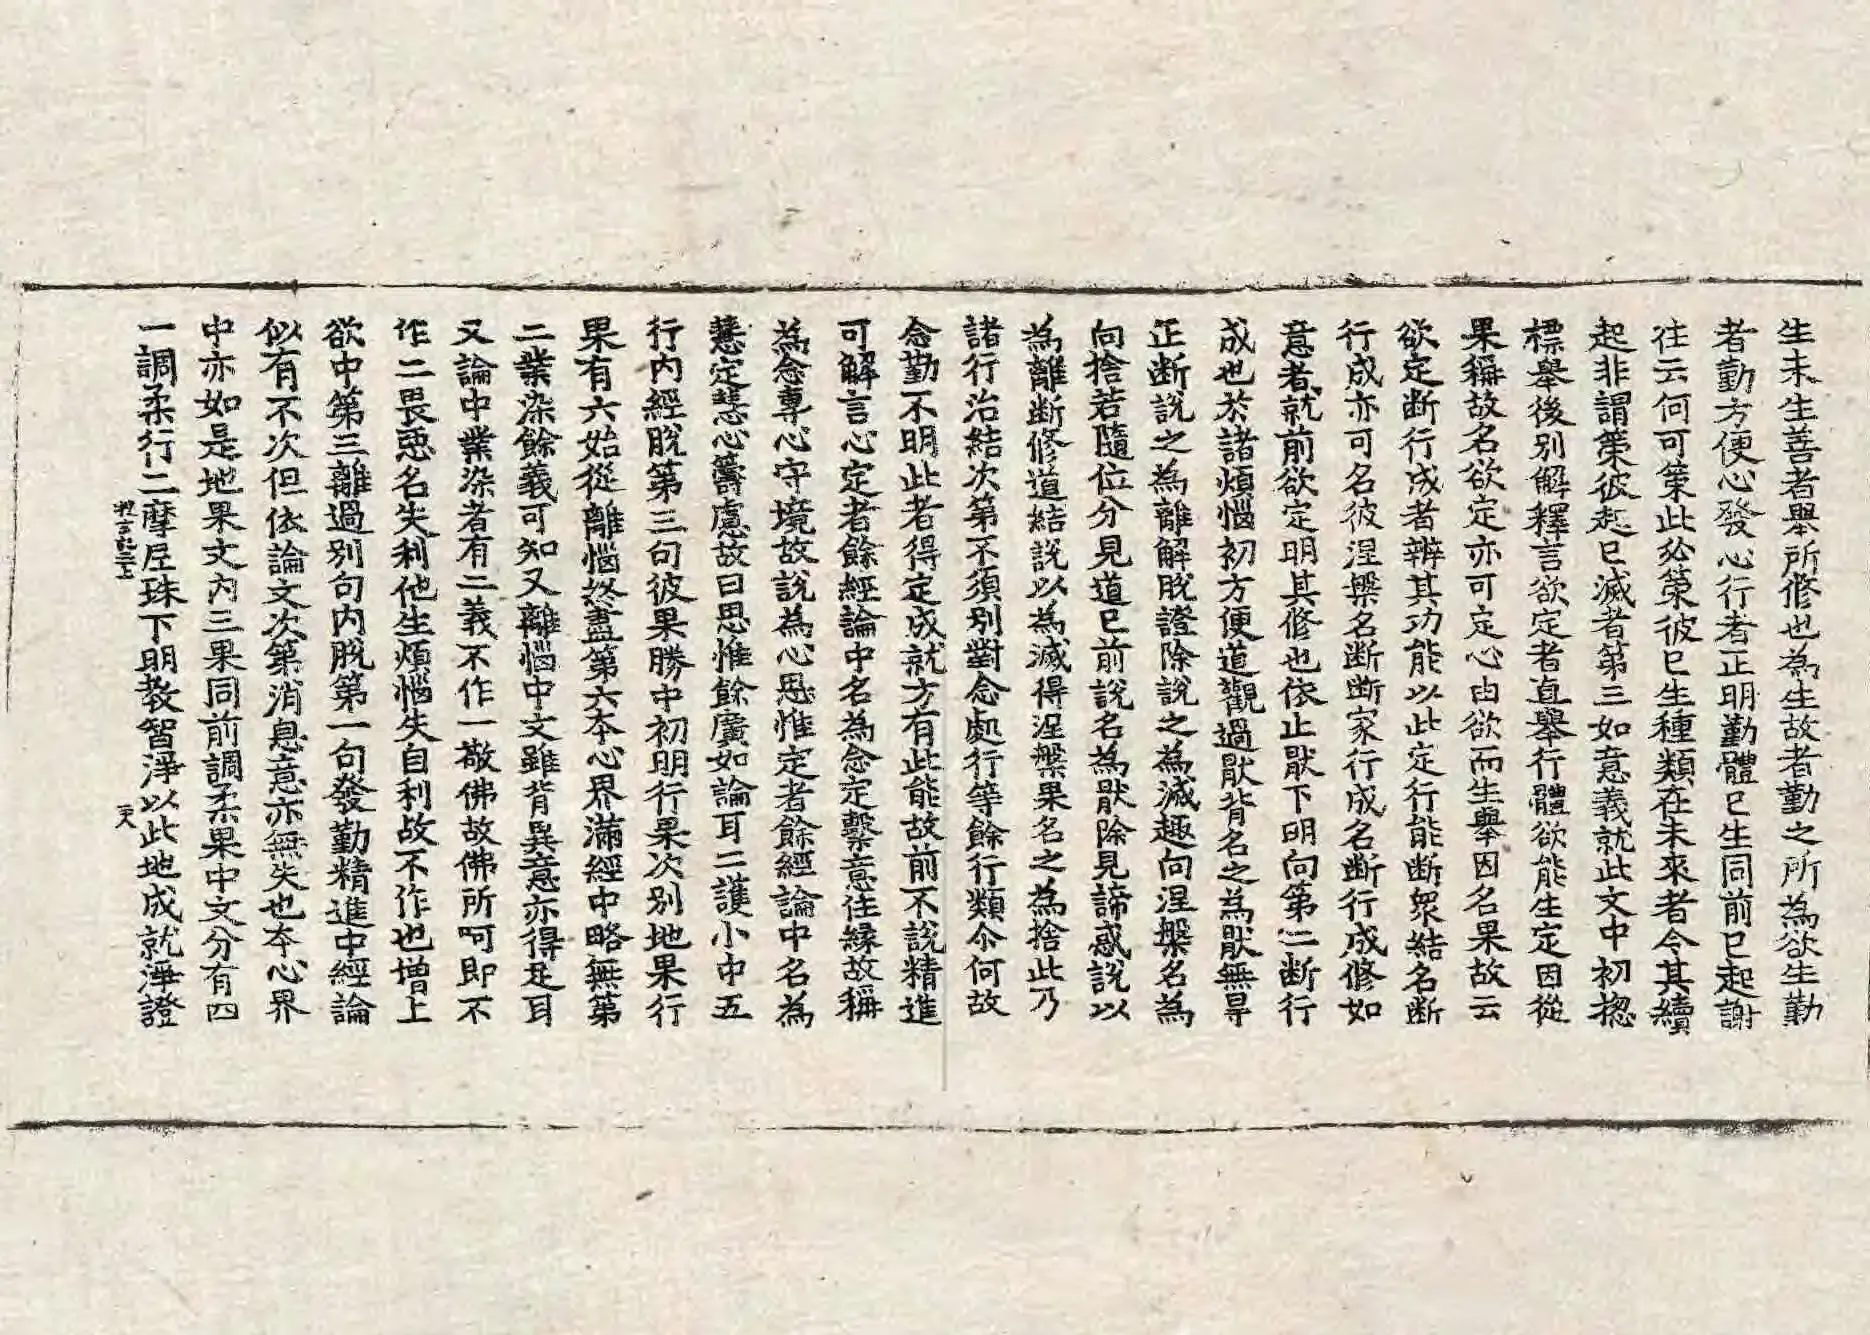 生未生善者舉所修也為生故者勤之所為欲生勤
者勤方便心發心行者正明勤體已生同前已起謝
往云何可策此必策彼已生種類在未來者令其續
起非謂策彼起已滅者第三如意義就此文中初揔
標舉後別解釋言欲定者直舉行體欲能生定因從
果稱故名欲定亦可定心由欲而生舉因名果故云
欲定断行成者辨其功能以此定行能断衆結名断
行成亦可名彼涅槃名断断家行成名断行成修如
意者就前欲定明其修也依止猒下明向第二断行
成也於諸煩惱初方便道觀過猒背名之為猒無㝵
正断說之為離解脫證除說之為滅趣向涅槃名為
向捨若隨位分見道已前說名為猒除見諦惑說以
為離断修道結說以為滅得涅槃果名之為捨此乃
諸行治結次第不須別對念處行等餘行類尒何故
念勤不明此者得定成就方有此能故前不說精進
可解言心定者餘經論中名為念定繫意住緣故稱
為念專心守境故說為心思惟定者餘經論中名為
慧定慧心籌慮故曰思惟餘廣如論耳二護小中五
行內經脫第三句彼果勝中初明行果次別地果行
果有六始從離惱終盡第六夲心界滿經中略無第
二業染餘義可知又離惱中文雖背異意亦得足耳
又論中業染者有二義不作一敬佛故佛所呵即不
作二畏惡名失利他生煩惱失自利故不作也增上
欲中第三離過別句內脫第一句發勤精進中經論
似有不次但依論文次第消息意亦無失也夲心界
中亦如是地果文內三果同前調柔果中文分有四
一調柔行二摩尼珠下明教智淨以此地成就淨證